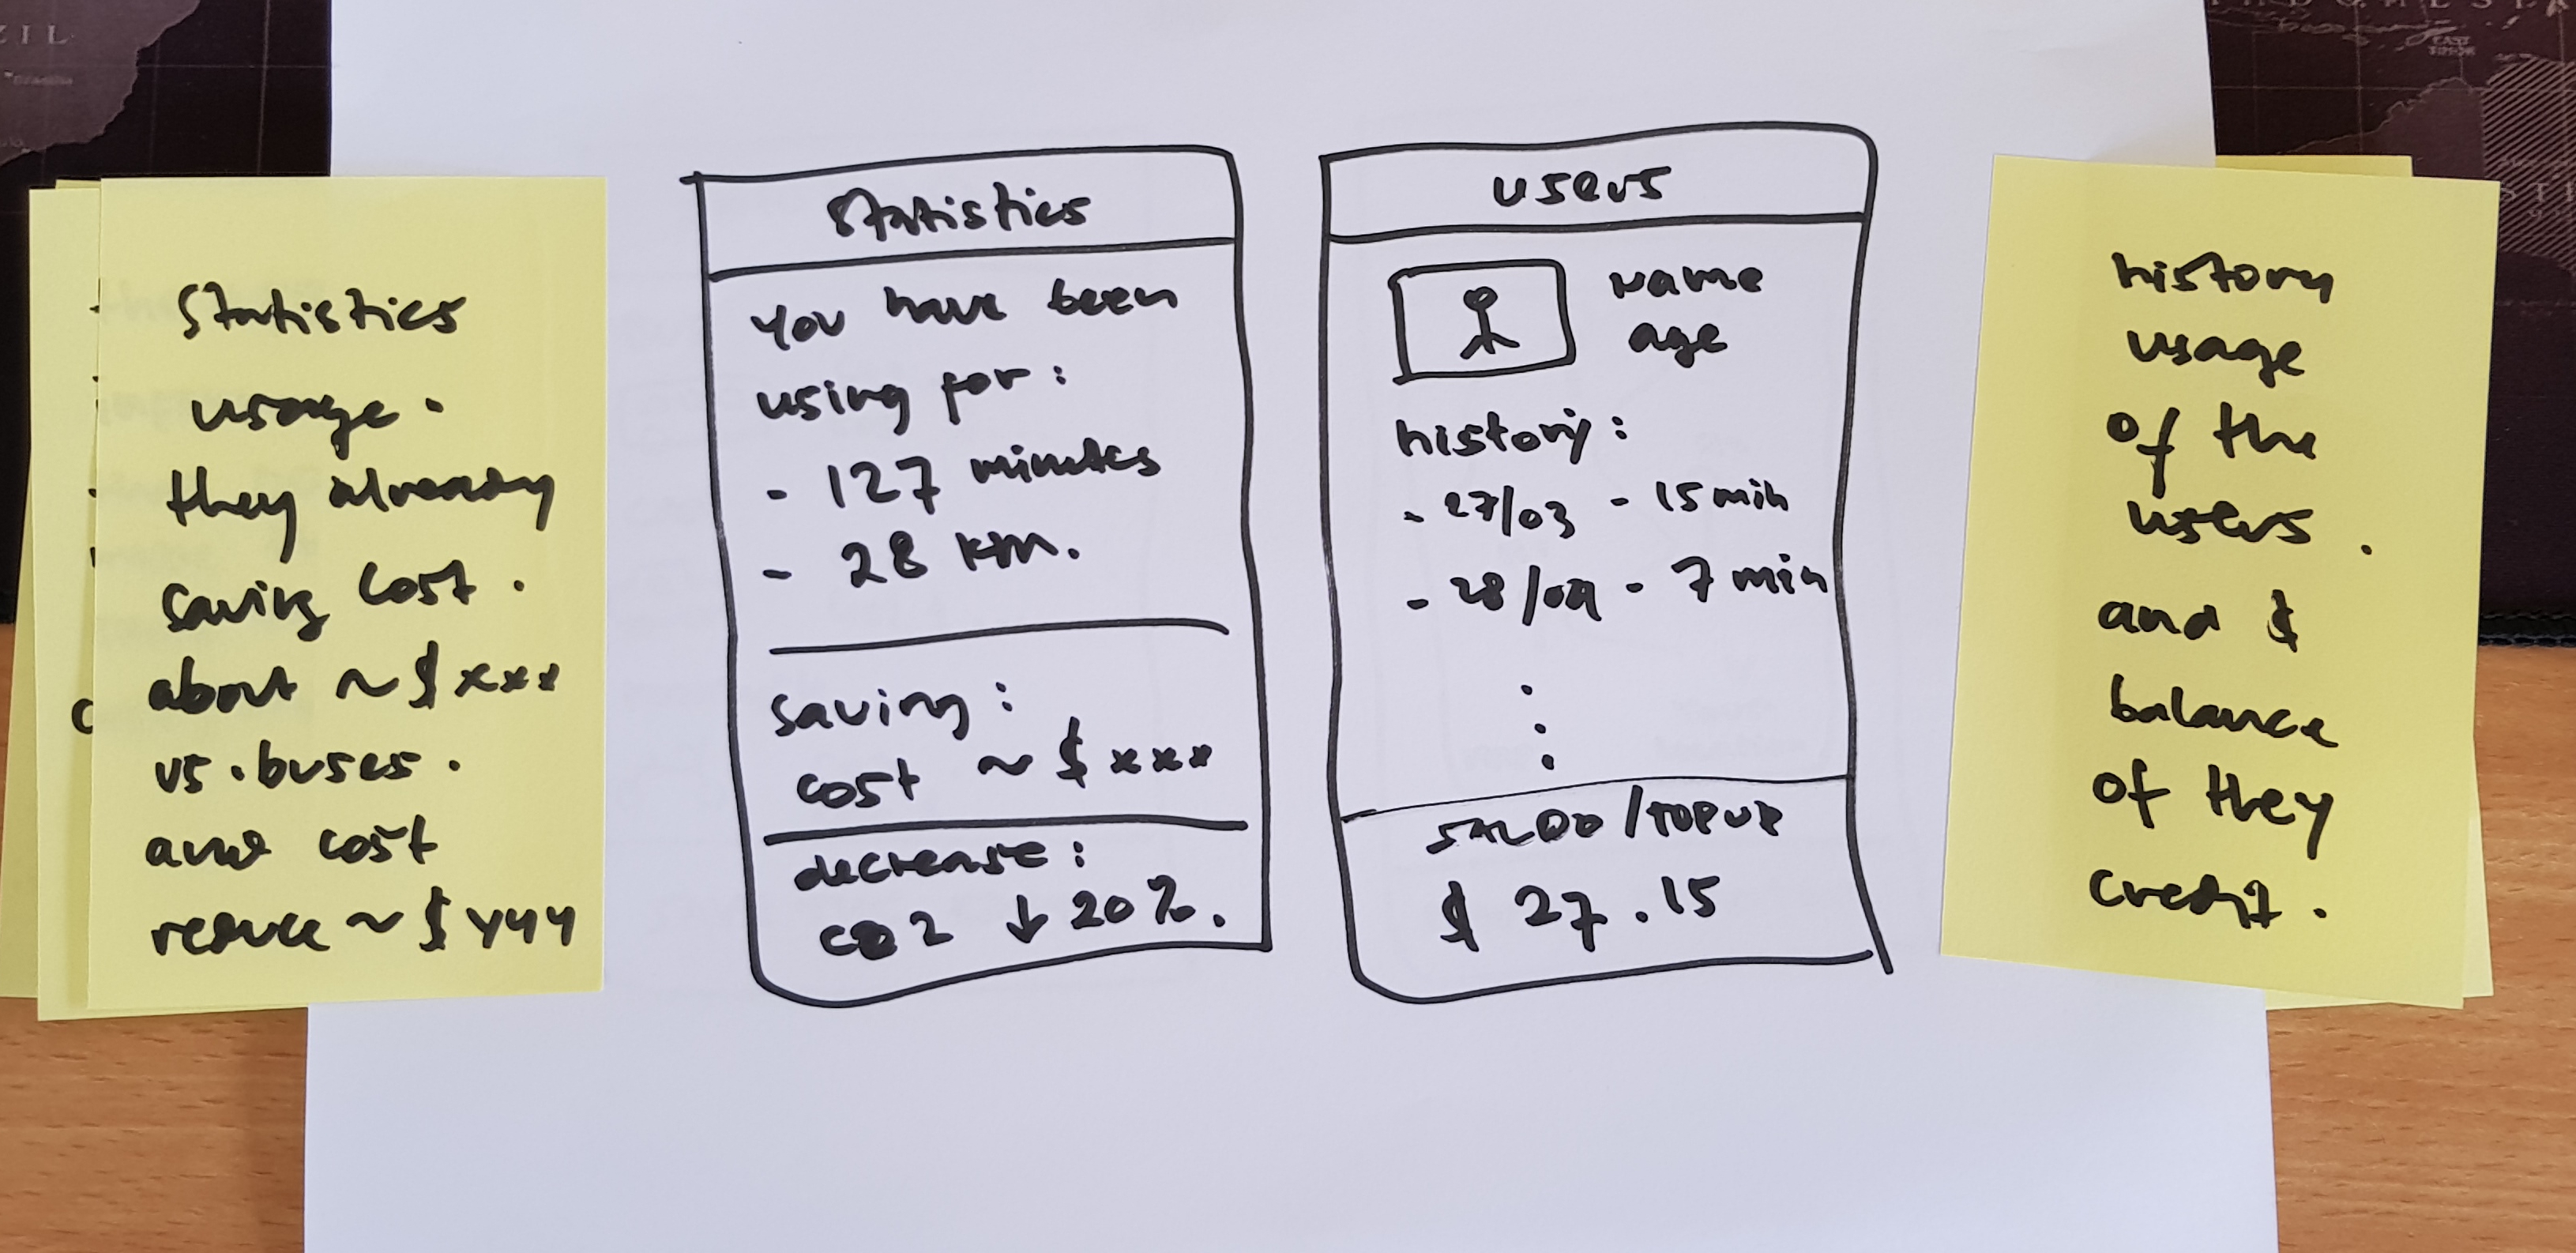 statistics
usage.
they already
saving cost.
about ~ $ xxx
vs. buses.
and cost
reduce ~ $ yyy
statistics
you have been
using for:
- 127 minutes
- 28 km.
saving:
cost ~ $ xxx
decrease:
CO2 ↓ 20%.
users
name
age
history:
- 27/03 - 15 min
- 28/ - 7 min
SALDO / TOPUP
$ 27.15
history
usage
of the
users.
and $
balance
of they
credit.
ZIL
EAST